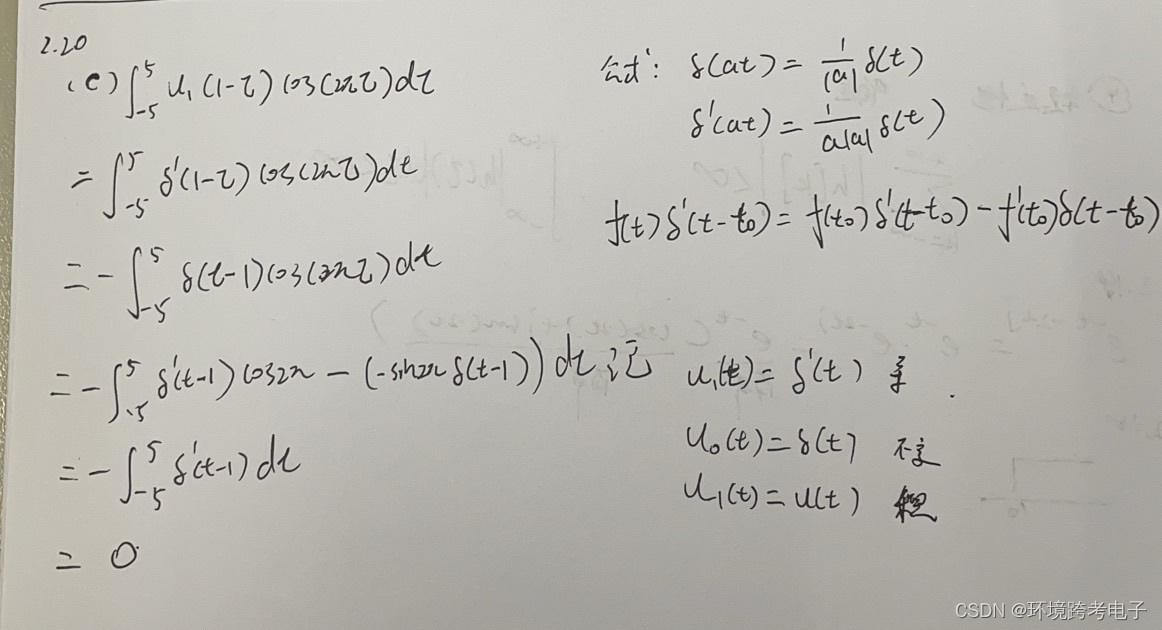 2.20
(c) ∫₋₅⁵ u₁(1-τ)cos(2πτ)dτ
= ∫₋₅⁵ δ'(1-τ)cos(2πτ)dτ
= -∫₋₅⁵ δ(τ-1)cos(2πτ)dτ
= -∫₋₅⁵ δ'(τ-1)cos2π - (-sin2π δ(τ-1))dτ
= -∫₋₅⁵ δ'(τ-1)dτ
= 0
公式: δ(at) = 1/|a| δ(t)
δ'(at) = 1/a|a| δ(t)
f(t)δ'(t-t₀) = f(t₀)δ'(t-t₀) - f'(t₀)δ(t-t₀)
记 u₁(t) = δ'(t) 导
u₀(t) = δ(t) 不变
u₁(t) = u(t)
CSDN @环境跨考电子